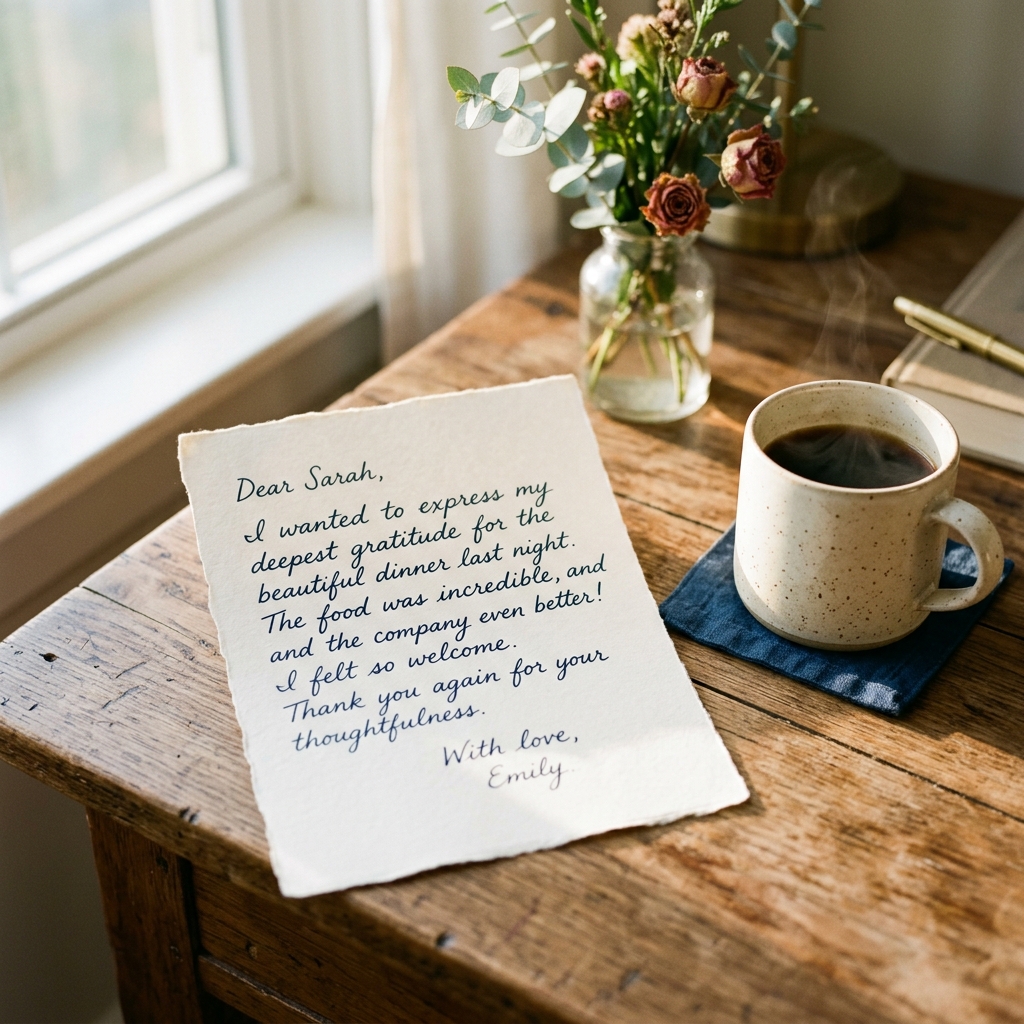 Dear Sarah,
I wanted to express my
deepest gratitude for the
beautiful dinner last night.
The food was incredible, and
and the company even better!
I felt so welcome.
Thank you again for your
thoughtfulness.
With love,
Emily.